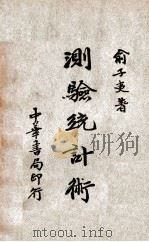 俞子夷著
測驗統計術
中華書局印行
www.mtoou.info